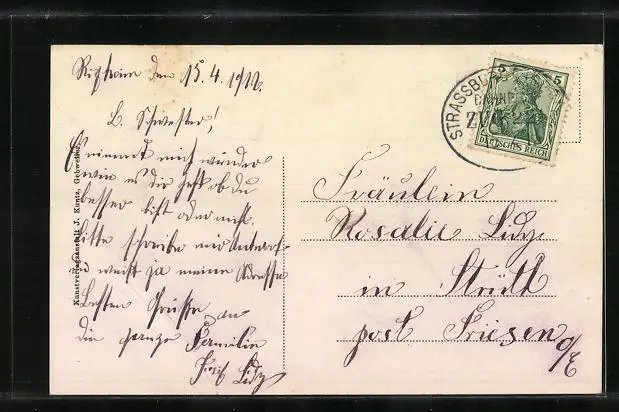 Rixheim den 15.4.1912.
L. Schwester!
Es nimmt mich wunder
wie es dir geht ob du
besser bist oder nicht.
bitte schreibe mir Antwort
du weist ja meine Adresse
Besten Grüsse an
die ganze Familie
Kunstverlagsanstalt J. Kuntz, Gebweiler.
STRASSBURG
BAHNP.
ZUG
5
DEUTSCHES REICH
Fräulein
Rosalie
in Strütt
post Friesen
O/E